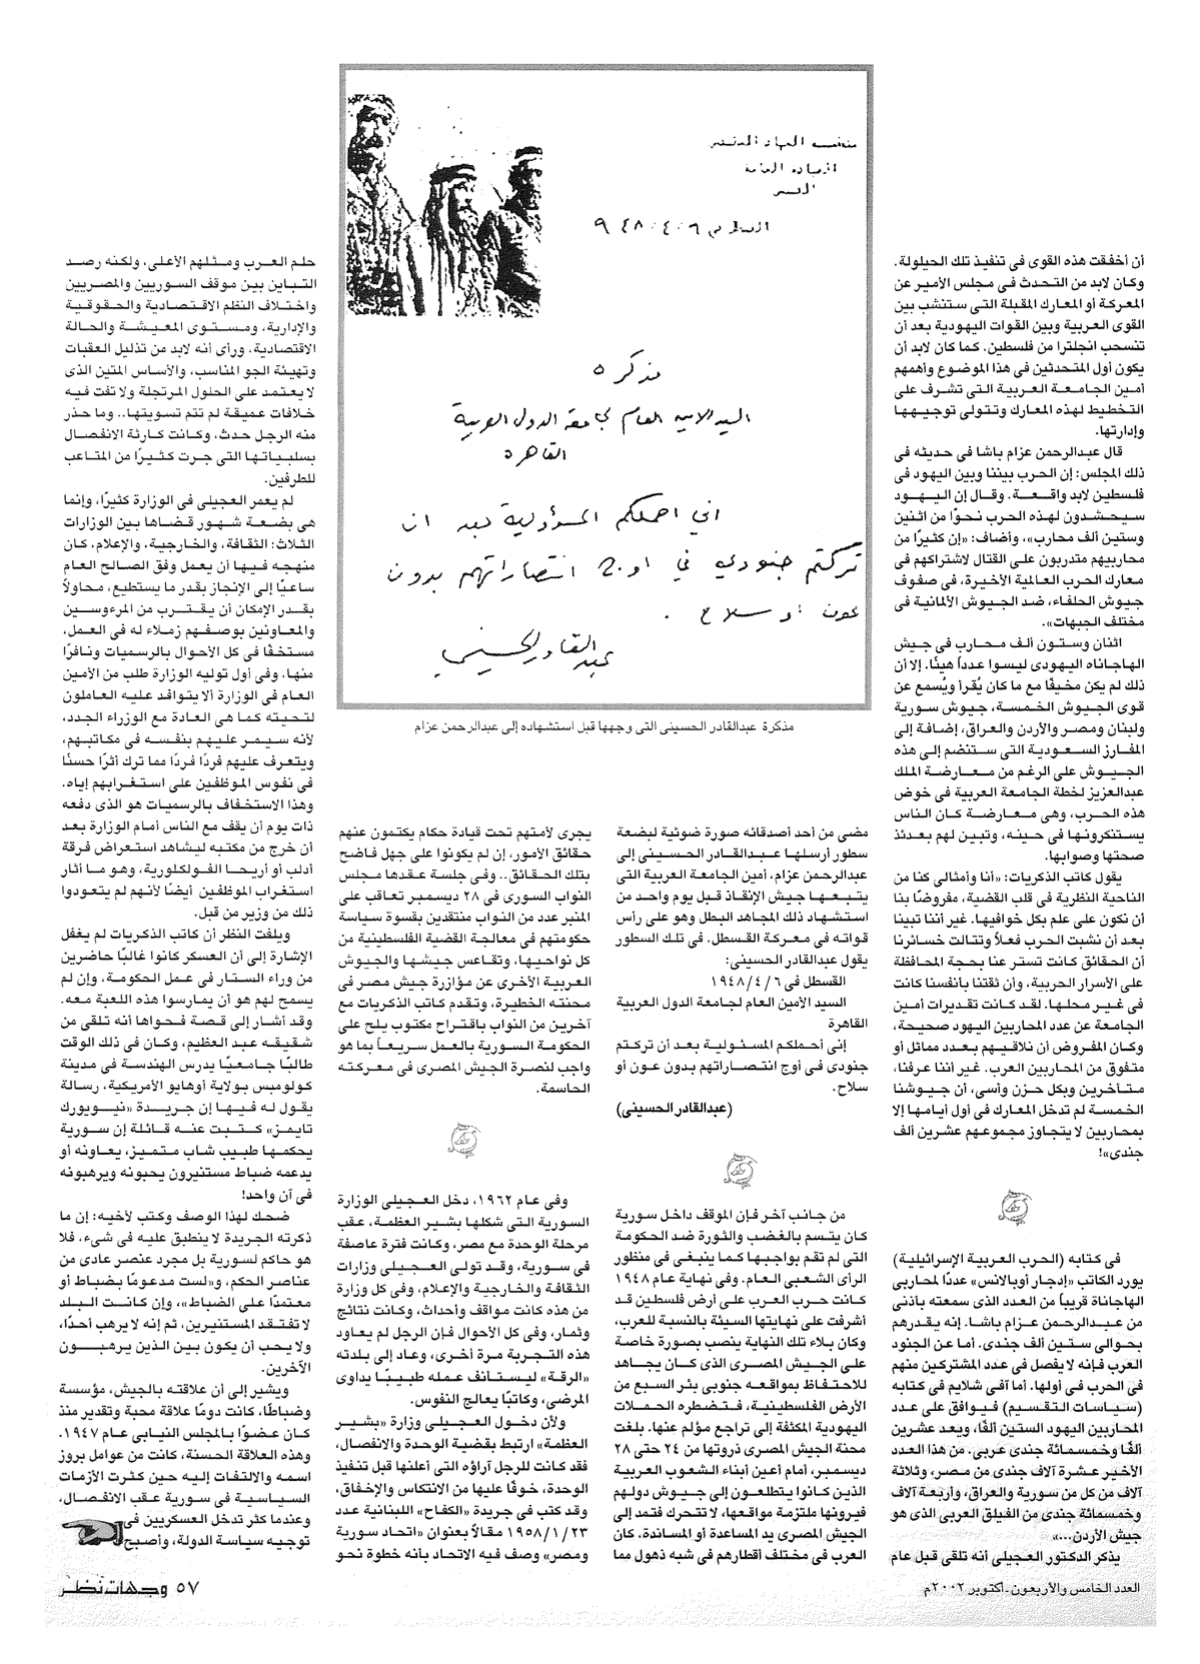 أن أخفقت هذه القوى فى تنفيذ تلك الحيلولة.
وكان لابد من التحدث فى مجلس الأمير عن
المعركة أو المعارك المقبلة التى ستنشب بين
القوى العربية وبين القوات اليهودية بعد أن
تنسحب انجلترا من فلسطين. كما كان لابد أن
يكون أول المتحدثين فى هذا الموضوع وأهمهم
أمين الجامعة العربية التى تشرف على
التخطيط لهذه المعارك وتتولى توجيهها
وإدارتها.
قال عبدالرحمن عزام باشا فى حديثه فى
ذلك المجلس: إن الحرب بيننا وبين اليهود فى
فلسطين لابد واقعة. وقال إن اليهود
سيحشدون لهذه الحرب نحوًا من اثنين
وستين ألف محارب»، وأضاف: «إن كثيرًا من
محاربيهم متدربون على القتال لاشتراكهم فى
معارك الحرب العالمية الأخيرة، فى صفوف
جيوش الحلفاء، ضد الجيوش الألمانية فى
مختلف الجبهات».
اثنان وستون ألف محارب فى جيش
الهاجاناه اليهودى ليسوا عددًا هينًا. إلا أن
ذلك لم يكن مخيفًا مع ما كان يُقرأ ويُسمع عن
قوى الجيوش الخمسة، جيوش سورية
ولبنان ومصر والأردن والعراق، إضافة إلى
المفارز السعودية التى ستنضم إلى هذه
الجيوش على الرغم من معارضة الملك
عبدالعزيز لخطة الجامعة العربية فى خوض
هذه الحرب، وهى معارضة كان الناس
يستنكرونها فى حينه، وتبين لهم بعدئذ
صحتها وصوابها.
يقول كاتب الذكريات: «أنا وأمثالى كنا من
الناحية النظرية فى قلب القضية، مفروضًا بنا
أن نكون على علم بكل خوافيها. غير أننا تبينا
بعد أن نشبت الحرب فعلاً وتتالت خسائرنا
أن الحقائق كانت تستر عنا بحجة المحافظة
على الأسرار الحربية، وأن ثقتنا بأنفسنا كانت
فى غير محلها. لقد كانت تقديرات أمين
الجامعة عن عدد المحاربين اليهود صحيحة،
وكان المفروض أن نلاقيهم بعدد مماثل أو
متفوق من المحاربين العرب. غير أننا عرفنا،
متأخرين وبكل حزن وأسى، أن جيوشنا
الخمسة لم تدخل المعارك فى أول أيامها إلا
بمحاربين لا يتجاوز مجموعهم عشرين ألف
جندى»!
فى كتابه (الحرب العربية الإسرائيلية)
يورد الكاتب «إدجار أوبالانس» عددًا لمحاربى
الهاجاناة قريباً من العدد الذى سمعته بأذنى
من عبدالرحمن عزام باشا. إنه يقدرهم
بحوالى ستين ألف جندى. أما عن الجنود
العرب فإنه لا يفصل فى عدد المشتركين منهم
فى الحرب فى أولها. أما آفى شلايم فى كتابه
(سياسات التقسيم) فيوافق على عدد
المحاربين اليهود الستين ألفًا، ويعد عشرين
ألفًا وخمسمائة جندى عربى. من هذا العدد
الأخير عشرة آلاف جندى من مصر، وثلاثة
آلاف من كل من سورية والعراق، وأربعة آلاف
وخمسمائة جندى من الفيلق العربى الذى هو
جيش الأردن...»
يذكر الدكتور العجيلى أنه تلقى قبل عام
القسطل فى ٩٤٨/٤/٦
مذكرة
السيد الامين العام لجامعة الدول العربية
القاهرة
اني احملكم المسؤولية بعد ان
تركتم جنودي في اوج انتصاراتهم بدون
عون او سلاح .
عبد القادر الحسيني
مذكرة عبدالقادر الحسينى التى وجهها قبل استشهاده إلى عبدالرحمن عزام
مضى من أحد أصدقائه صورة ضوئية لبضعة
سطور أرسلها عبدالقادر الحسينى إلى
عبدالرحمن عزام، أمين الجامعة العربية التى
يتبعها جيش الإنقاذ قبل يوم واحد من
استشهاد ذلك المجاهد البطل وهو على رأس
قواته فى معركة القسطل. فى تلك السطور
يقول عبدالقادر الحسينى:
القسطل فى ١٩٤٨/٤/٦
السيد الأمين العام لجامعة الدول العربية
القاهرة
إنى أحملكم المسئولية بعد أن تركتم
جنودى فى أوج انتصاراتهم بدون عون أو
سلاح.
(عبدالقادر الحسينى)
من جانب آخر فإن الموقف داخل سورية
كان يتسم بالغضب والثورة ضد الحكومة
التى لم تقم بواجبها كما ينبغى فى منظور
الرأى الشعبى العام. وفى نهاية عام ١٩٤٨
كانت حرب العرب على أرض فلسطين قد
أشرفت على نهايتها السيئة بالنسبة للعرب،
وكان بلاء تلك النهاية ينصب بصورة خاصة
على الجيش المصرى الذى كان يجاهد
للاحتفاظ بمواقعه جنوبى بئر السبع من
الأرض الفلسطينية، فتضطره الحملات
اليهودية المكثفة إلى تراجع مؤلم عنها. بلغت
محنة الجيش المصرى ذروتها من ٢٤ حتى ٢٨
ديسمبر، أمام أعين أبناء الشعوب العربية
الذين كانوا يتطلعون إلى جيوش دولهم
فيرونها ملتزمة مواقعها، لا تتحرك فتمد إلى
الجيش المصرى يد المساعدة أو المساندة. كان
العرب فى مختلف أقطارهم فى شبه ذهول مما
يجرى لأمتهم تحت قيادة حكام يكتمون عنهم
حقائق الأمور، إن لم يكونوا على جهل فاضح
بتلك الحقائق.. وفى جلسة عقدها مجلس
النواب السورى فى ٢٨ ديسمبر تعاقب على
المنبر عدد من النواب منتقدين بقسوة سياسة
حكومتهم فى معالجة القضية الفلسطينية من
كل نواحيها، وتقاعس جيشها والجيوش
العربية الأخرى عن مؤازرة جيش مصر فى
محنته الخطيرة، وتقدم كاتب الذكريات مع
آخرين من النواب باقتراح مكتوب يلح على
الحكومة السورية بالعمل سريعاً بما هو
واجب لنصرة الجيش المصرى فى معركته
الحاسمة.
وفى عام ١٩٦٢، دخل العجيلى الوزارة
السورية التى شكلها بشير العظمة، عقب
مرحلة الوحدة مع مصر، وكانت فترة عاصفة
فى سورية، وقد تولى العجيلى وزارات
الثقافة والخارجية والإعلام، وفى كل وزارة
من هذه كانت مواقف وأحداث، وكانت نتائج
وثمار، وفى كل الأحوال فإن الرجل لم يعاود
هذه التجربة مرة أخرى، وعاد إلى بلدته
«الرقة» ليستانف عمله طبيبًا يداوى
المرضى، وكاتبًا يعالج النفوس.
ولأن دخول العجيلى وزارة «بشير
العظمة» ارتبط بقضية الوحدة والانفصال،
فقد كانت للرجل آراؤه التى أعلنها قبل تنفيذ
الوحدة، خوفًا عليها من الانتكاس والإخفاق،
وقد كتب فى جريدة «الكفاح» اللبنانية عدد
١٩٥٨/١/٢٣ مقالاً بعنوان «اتحاد سورية
ومصر» وصف فيه الاتحاد بأنه خطوة نحو
حلم العرب ومثلهم الأعلى، ولكنه رصد
التباين بين موقف السوريين والمصريين
واختلاف النظم الاقتصادية والحقوقية
والإدارية، ومستوى المعيشة والحالة
الاقتصادية. ورأى أنه لابد من تذليل العقبات
وتهيئة الجو المناسب، والأساس المتين الذى
لا يعتمد على الحلول المرتجلة ولا تفت فيه
خلافات عميقة لم تتم تسويتها.. وما حذر
منه الرجل حدث، وكانت كارثة الانفصال
بسلبياتها التى جرت كثيرًا من المتاعب
للطرفين.
لم يعمر العجيلى فى الوزارة كثيرًا، وإنما
هى بضعة شهور قضاها بين الوزارات
الثلاث: الثقافة، والخارجية، والإعلام، كان
منهجه فيها أن يعمل وفق الصالح العام
ساعيًا إلى الإنجاز بقدر ما يستطيع، محاولاً
بقدر الإمكان أن يقترب من المرءوسين
والمعاونين بوصفهم زملاء له فى العمل،
مستخفًا فى كل الأحوال بالرسميات ونافرًا
منها، وفى أول توليه الوزارة طلب من الأمين
العام فى الوزارة ألا يتوافد عليه العاملون
لتحيته كما هى العادة مع الوزراء الجدد،
لأنه سيمر عليهم بنفسه فى مكاتبهم،
ويتعرف عليهم فردًا فردًا مما ترك أثرًا حسنًا
فى نفوس الموظفين على استغرابهم إياه.
وهذا الاستخفاف بالرسميات هو الذى دفعه
ذات يوم أن يقف مع الناس أمام الوزارة بعد
أن خرج من مكتبه ليشاهد استعراض فرقة
أدلب أو أريحا الفولكلورية، وهو ما أثار
استغراب الموظفين أيضًا لأنهم لم يتعودوا
ذلك من وزير من قبل.
ويلفت النظر أن كاتب الذكريات لم يغفل
الإشارة إلى أن العسكر كانوا غالبًا حاضرين
من وراء الستار فى عمل الحكومة، وإن لم
يسمح لهم هو أن يمارسوا هذه اللعبة معه.
وقد أشار إلى قصة فحواها أنه تلقى من
شقيقه عبد العظيم، وكان فى ذلك الوقت
طالبًا جامعيًا يدرس الهندسة فى مدينة
كولومبس بولاية أوهايو الأمريكية، رسالة
يقول له فيها إن جريدة «نيويورك
تايمز» كتبت عنه قائلة إن سورية
يحكمها طبيب شاب متميز، يعاونه أو
يدعمه ضباط مستنيرون يحبونه ويرهبونه
فى آن واحد!
ضحك لهذا الوصف وكتب لأخيه: إن ما
ذكرته الجريدة لا ينطبق عليه فى شىء، فلا
هو حاكم لسورية بل مجرد عنصر عادى من
عناصر الحكم، و«لست مدعومًا بضباط أو
معتمدًا على الضباط»، وإن كانت البلد
لا تفتقد المستنيرين، ثم إنه لا يرهب أحدًا،
ولا يحب أن يكون بين الذين يرهبون
الآخرين.
ويشير إلى أن علاقته بالجيش، مؤسسة
وضباطًا، كانت دومًا علاقة محبة وتقدير منذ
كان عضوًا بالمجلس النيابى عام ١٩٤٧.
وهذه العلاقة الحسنة، كانت من عوامل بروز
اسمه والالتفات إليه حين كثرت الأزمات
السياسية فى سورية عقب الانفصال،
وعندما كثر تدخل العسكريين فى
توجيه سياسة الدولة، وأصبح
العدد الخامس والأربعون.أكتوبر ٢٠٠٢م
٥٧ وجهات نظر